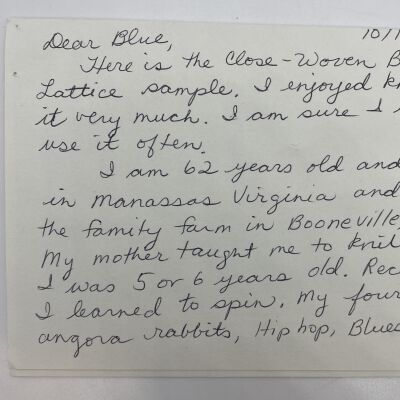 10/1
Dear Blue,
Here is the Close-Woven B
Lattice sample. I enjoyed kn
it very much. I am sure I
use it often.
I am 62 years old and
in Manassas Virginia and
the family farm in Booneville,
My mother taught me to knit
I was 5 or 6 years old. Rec
I learned to spin. My four
angora rabbits, Hip hop, Blues